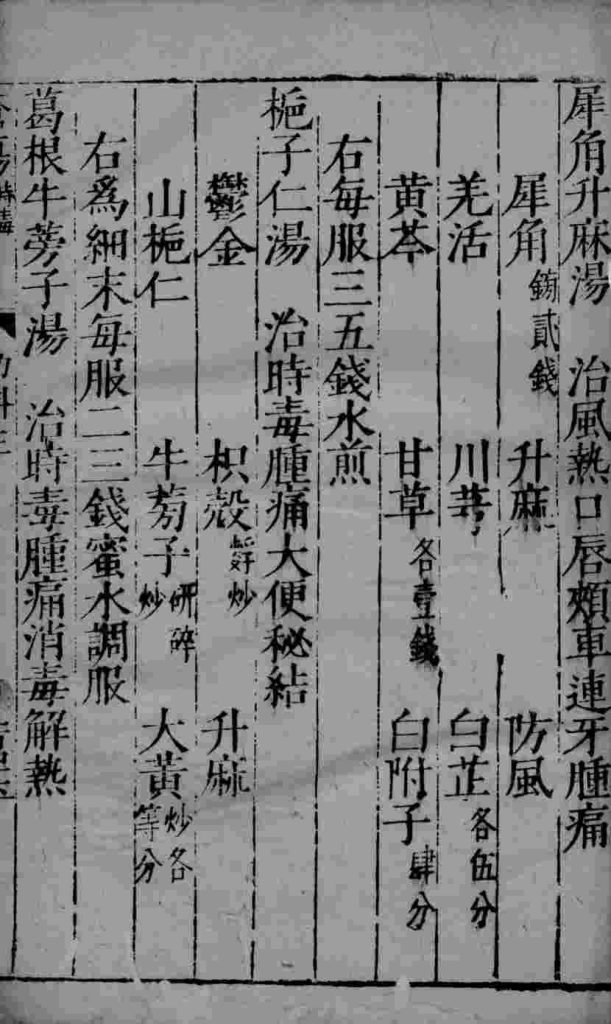 犀角升麻湯　治風熱口唇頰車連牙腫痛
犀角鎊貳錢　升麻　防風
羌活　川芎　白芷各伍分
黄芩　甘草各壹錢　白附子肆分
右每服三五錢水煎
梔子仁湯　治時毒腫痛大便秘結
鬱金　枳殼炒　升麻
山梔仁　牛蒡子研碎炒　大黃炒各等分
右爲細末每服二三錢蜜水調服
葛根牛蒡子湯　治時毒腫痛消毒解熱